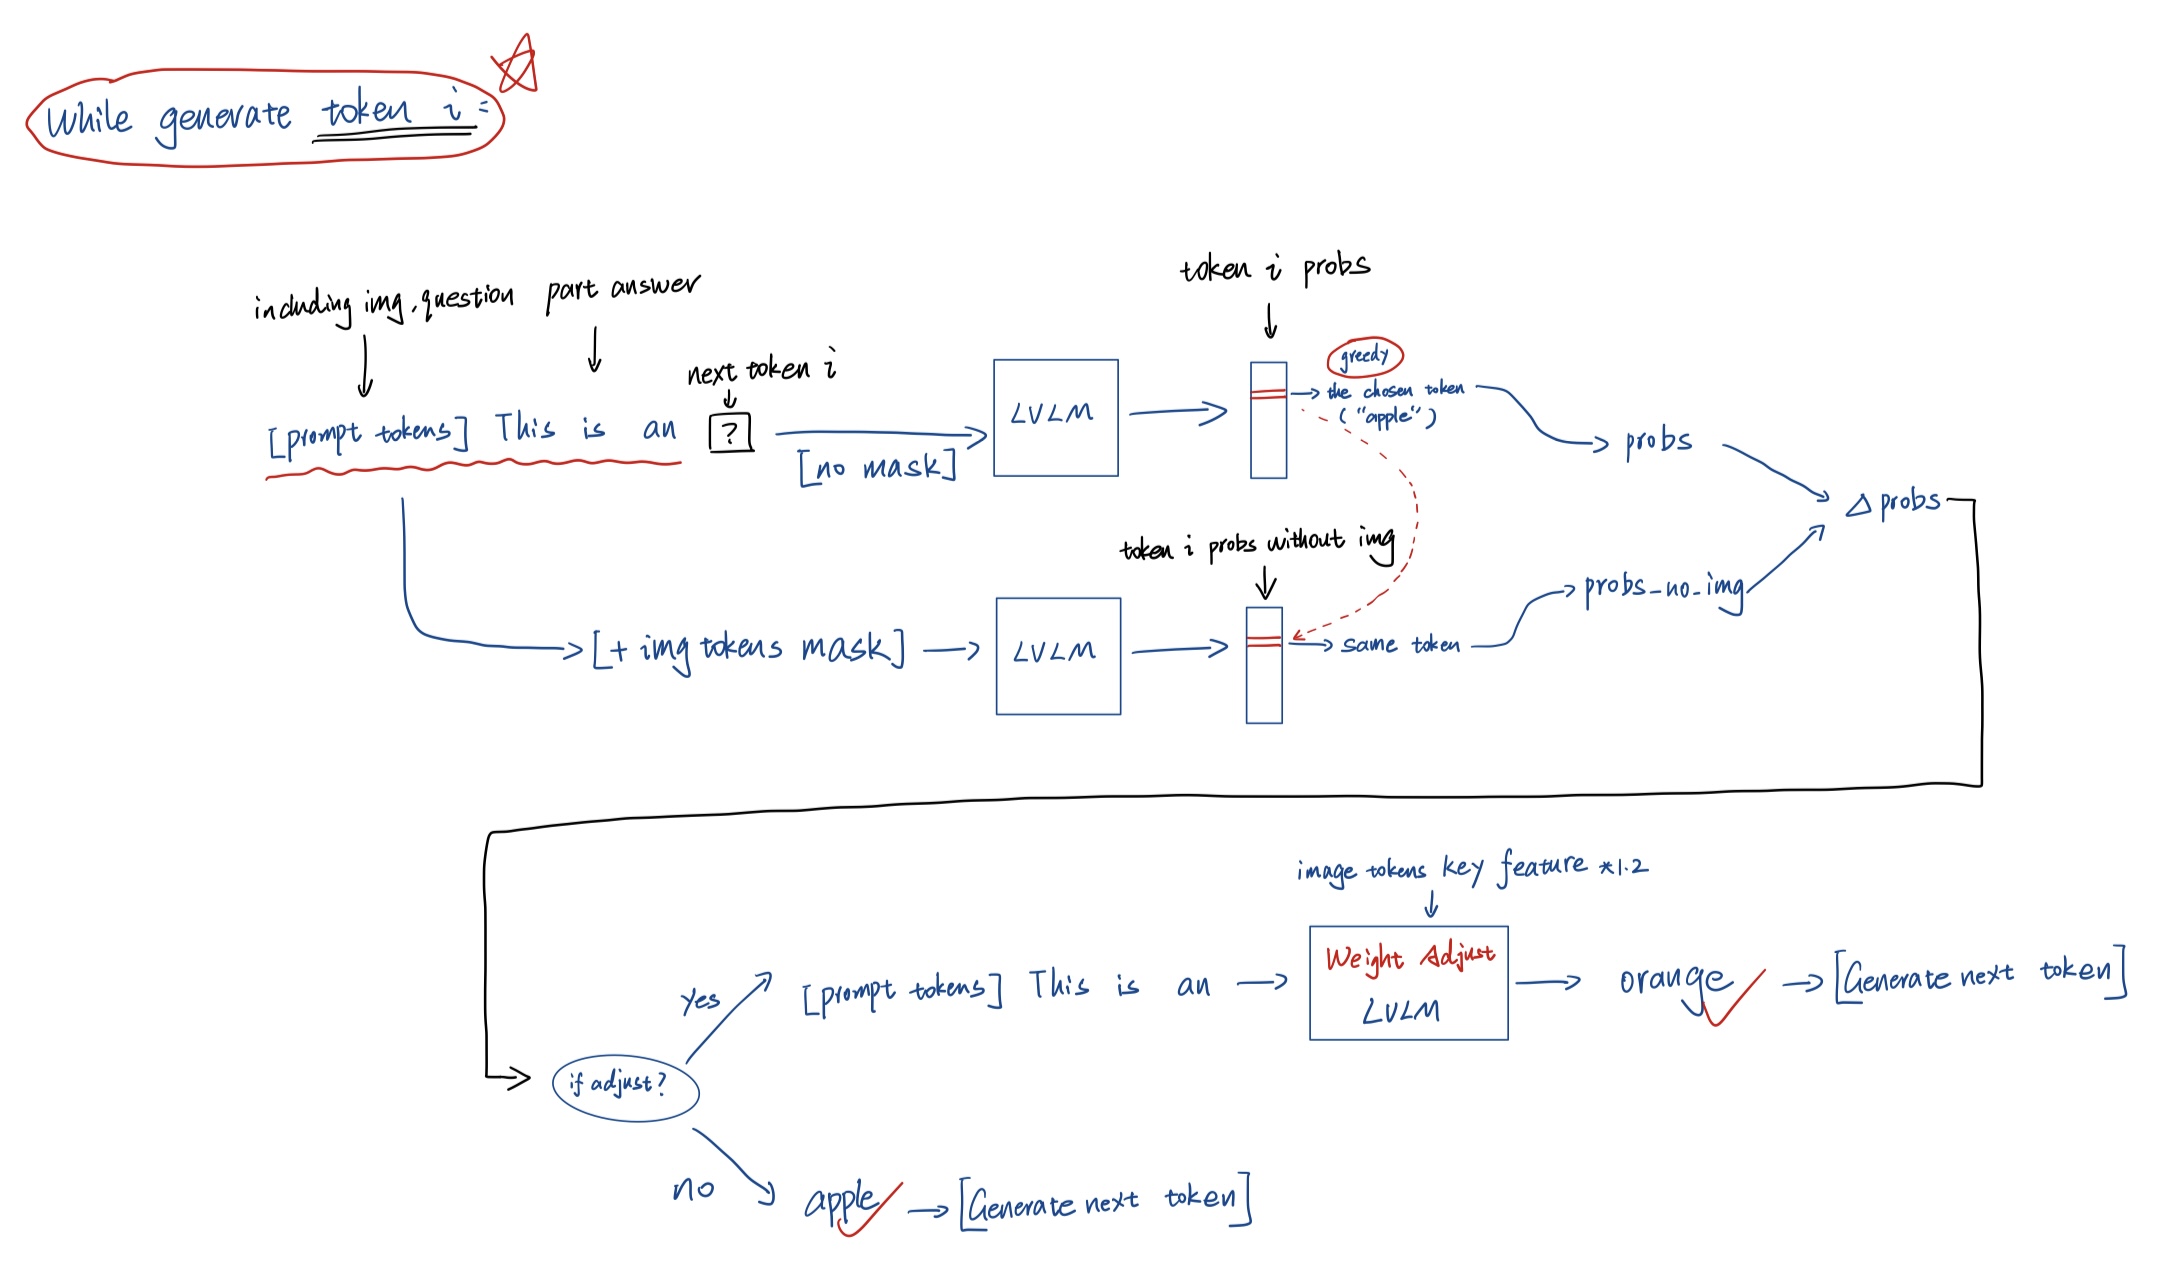 While generate token i:
including img, question part answer
next token i
[prompt tokens] This is an ?
[no mask]
LVLM
token i probs
greedy
the chosen token
("apple")
probs
Δ probs
[+ img tokens mask]
LVLM
token i probs without img
same token
probs_no_img
if adjust?
Yes
[prompt tokens] This is an
image tokens key feature *1.2
Weight Adjust
LVLM
orange
[Generate next token]
no
apple
[Generate next token]